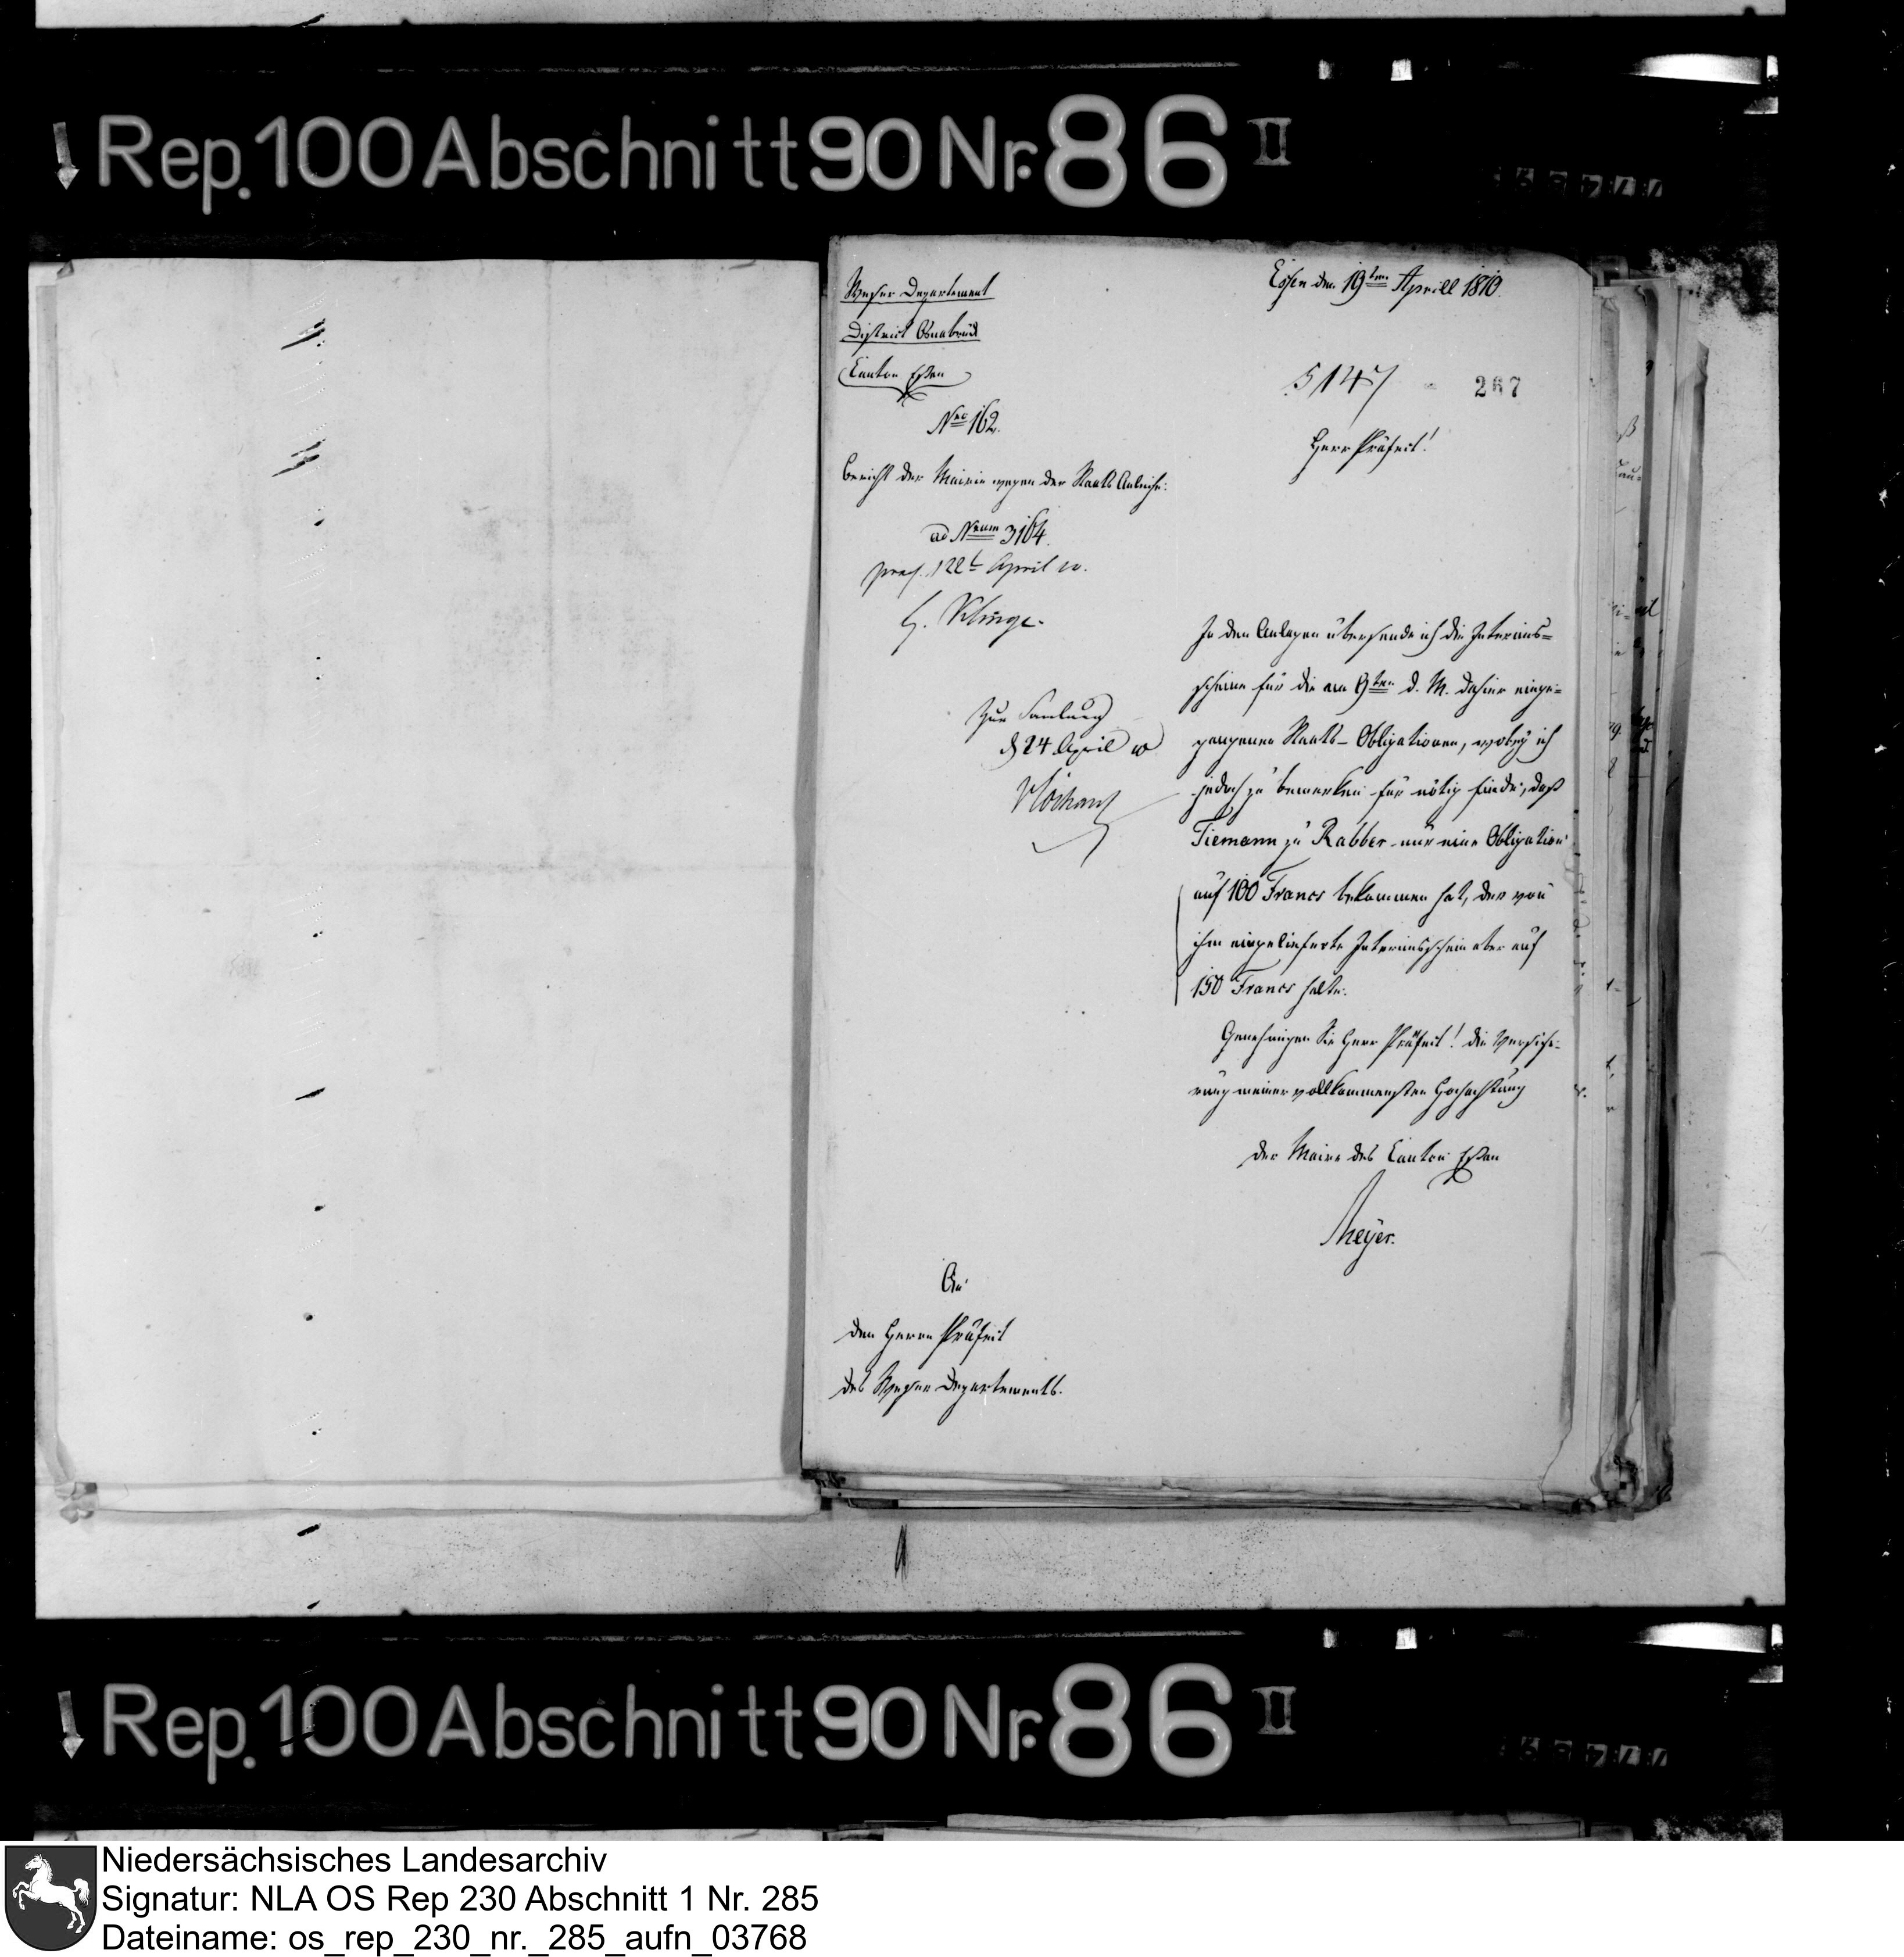 Rep. 100 Abschnitt 90 Nr. 86 II
Weser Departement
District Osnabrück
Canton Essen
Nro 162.
Bericht der Mairie wegen der Staats Anleihe.
ad Nrum 3164.
praes. 22t April 10.
G. Klinge.
Zur Samlung
d 24 April 10
Essen den 19ten Aprill 1810.
5147
267
Herr Präfect!
In den Anlagen übersende ich die Interims=
scheine für die am 9ten d. M. dahier einge=
gangenen Staats-Obligationen, wobey ich
jedoch zu bemerken für nötig finde, daß
Tiemann zu Rabber nur eine Obligation
auf 100 Francs bekommen hat, der von
ihm eingelieferte Interimsschein aber auf
150 Francs halte.
Genehmigen Sie Herr Präfect! die Versiche=
rung meiner vollkommensten Hochachtung
Der Maire des Canton Essen
Meyer.
An
den Herrn Präfect
des Weser Departements.
Rep. 100 Abschnitt 90 Nr. 86 II
Niedersächsisches Landesarchiv
Signatur: NLA OS Rep 230 Abschnitt 1 Nr. 285
Dateiname: os_rep_230_nr._285_aufn_03768